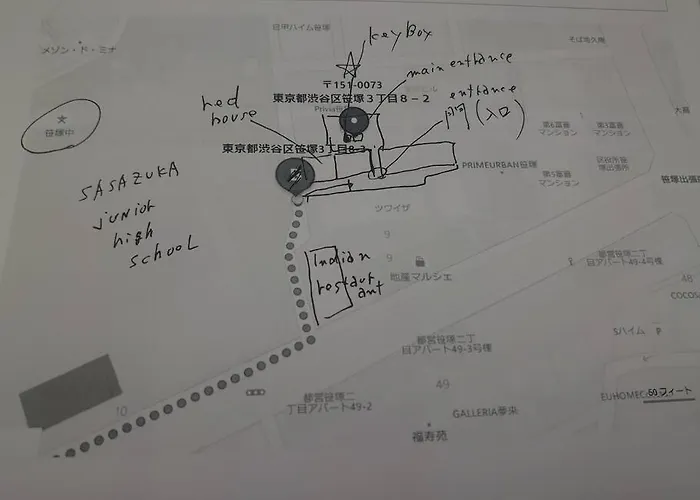 メゾン・ド・ミナ
笹塚中
SASAZUKA
junior
high
school
red
house
Key Box
〒151-0073
東京都渋谷区笹塚3丁目8−2
main entrance
entrance
門(入口)
東京都渋谷区笹塚3丁目8-3
PRIMEURBAN笹塚
第6富善
マンション
第5富善
マンション
笹塚出張所
ツワイザ
9
9
Indian
restaur
ant
地産マルシェ
都営笹塚二丁
目アパート49-4号棟
48
COCOS
都営笹塚二丁
目アパート49-3号棟
Sハイム P
49
10
都営笹塚二
丁目アパート49-2
GALLERIA夢央
福寿苑
50フィート